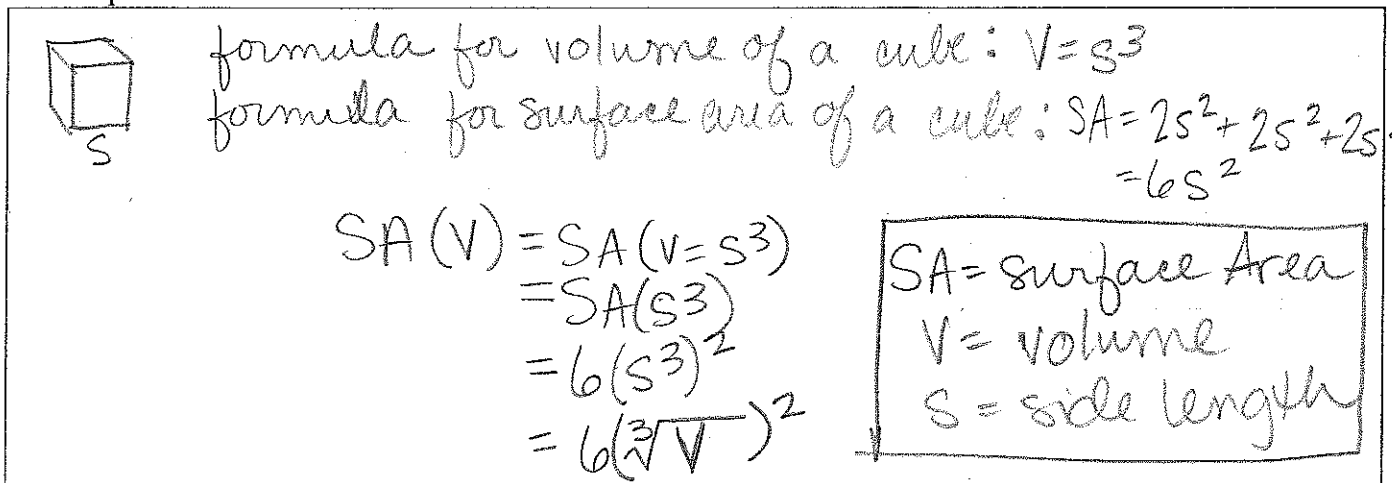 formula for volume of a cube: V=s³
formula for surface area of a cube: SA=2s²+2s²+2s
=6s²
S
SA(V)=SA(V=s³)
=SA(s³)
=6(s³)²
=6(∛V)²
SA=surface Area
V=volume
S=side length